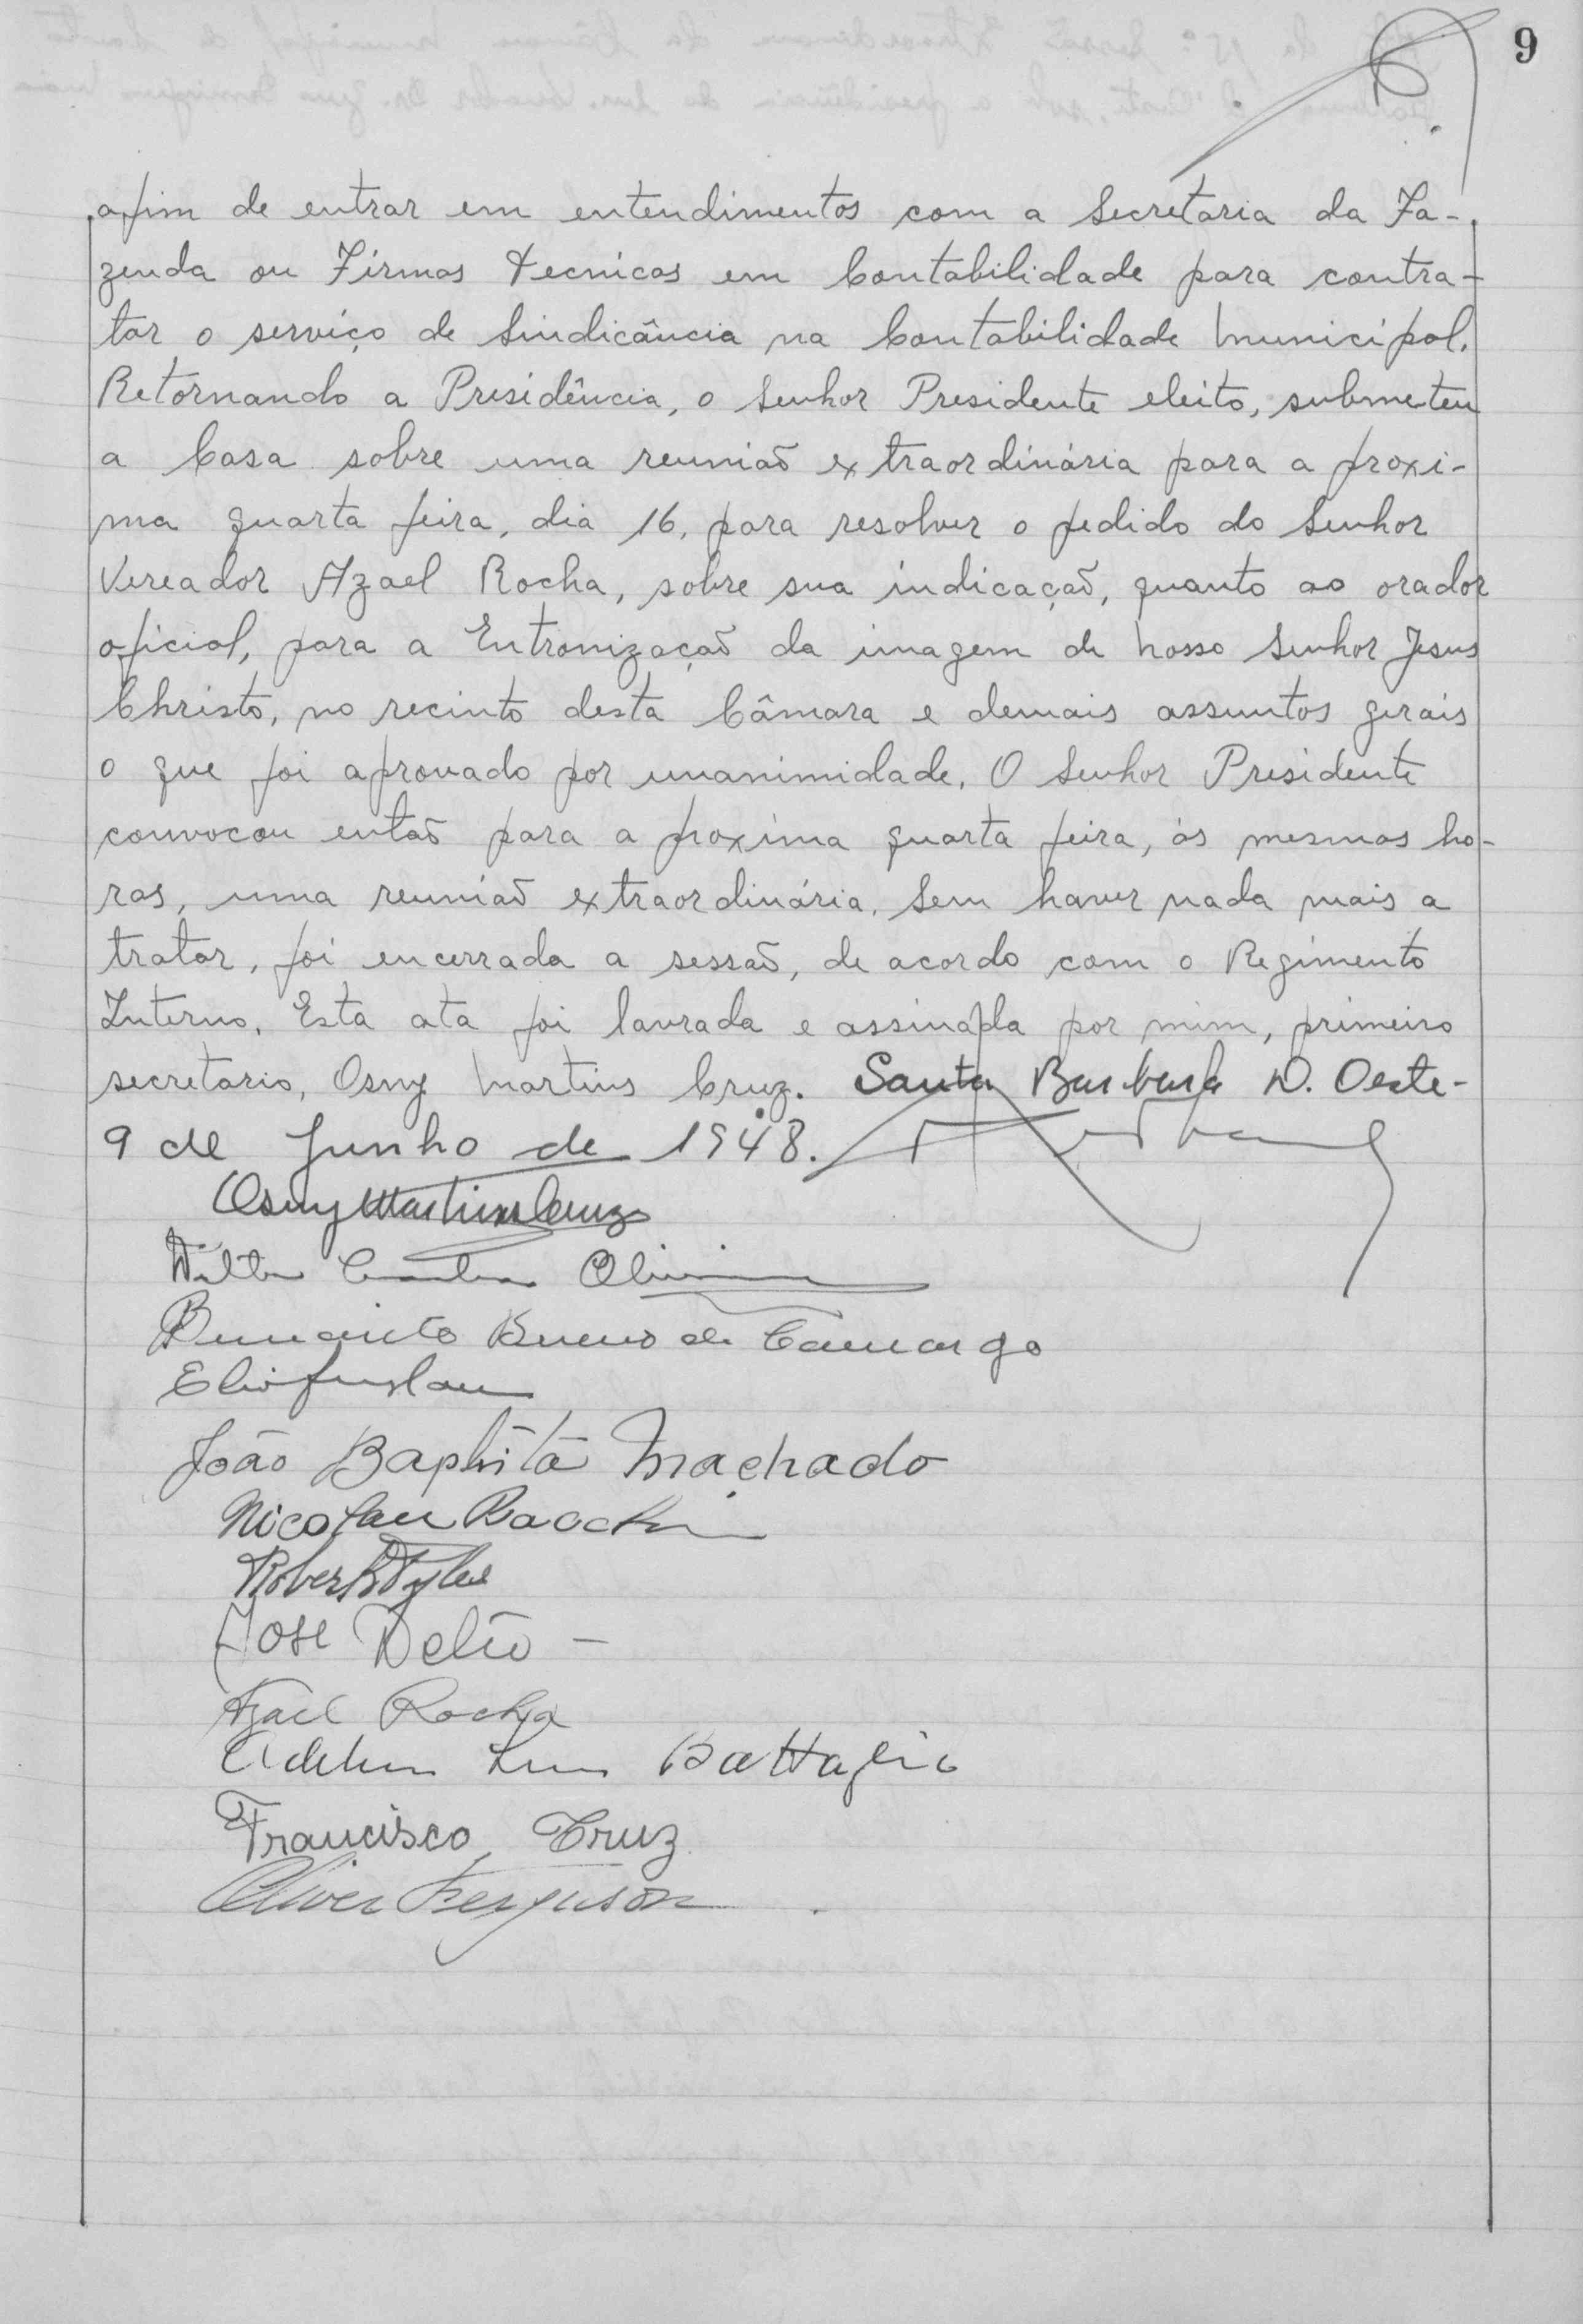 9
afim de entrar em entendimentos com a Secretaria da Fa-
zenda ou Firmas tecnicas em Contabilidade para contra-
tar o serviço de Sindicância na Contabilidade Municipal.
Retornando a Presidência, o Senhor Presidente eleito, submeteu
a Casa sobre uma reunião extraordinária para a proxi-
ma quarta feira, dia 16, para resolver o pedido do Senhor
Vereador Azael Rocha, sobre sua indicação, quanto ao orador
oficial, para a Entronização da imagem de Nosso Senhor Jesus
Christo, no recinto desta Câmara e demais assuntos gerais
o que foi aprovado por unanimidade. O Senhor Presidente
convocou então para a proxima quarta feira, ás mesmas ho-
ras, uma reunião extraordinária. Sem haver nada mais a
tratar, foi encerrada a sessão, de acordo com o Regimento
Interno. Esta ata foi lavrada e assinada por mim, primeiro
secretario, Osny Martins Cruz. Santa Barbara D. Oeste-
9 de Junho de 1948.
Osny Martins Cruz
Oliveira
Benedicto Bueno de Camargo
João Baptista Machado
Nicolau Bacchi
José Delio -
Azael Rocha
Battaglia
Francisco Cruz
Oliver Ferguson